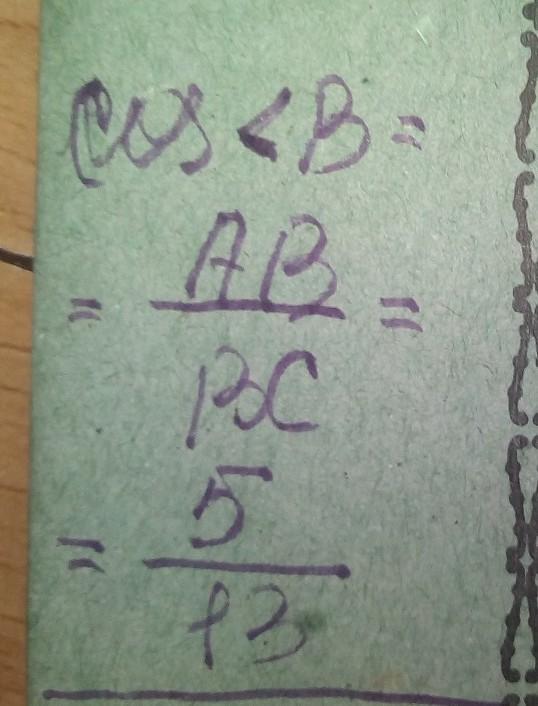 cos < B =
= AB / BC =
= 5 / 13